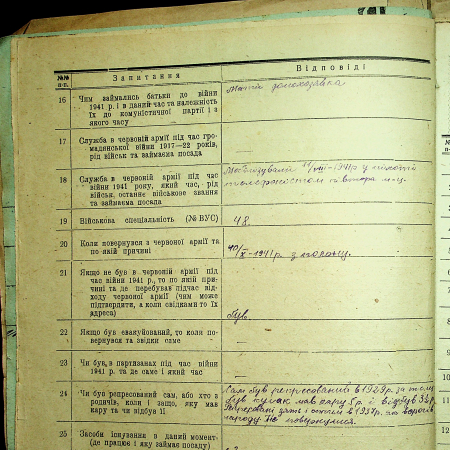 №№ п-п.
Запитання
Відповіді
16
Чим займались батьки до війни
1941 р. і в даний час та належність
їх до комуністичної партії і з
якого часу
Мати домохозяйка
17
Служба в червоній армії під час гро-
мадянської війни 1917—22 років,
рід військ та займаєма посада
18
Служба в червоній армії під час
війни 1941 року, який час, рід
військ, останнє військове звання
та займаєма посада
Мобілізували VIII-1941 р. у
19
Військова спеціальність (№ ВУС)
48.
20
Коли повернувся з червоної армії та
по якій причині
X-1941 р. з полону.
21
Якщо не був в червоній армії під
час війни 1941 р., то по якій при-
чині та де перебував підчас від-
ходу червоної армії (чим може
підтвердити, а коли свідками то їх
адреса)
був
22
Якщо був евакуйований, то коли по-
вернувся та звідки саме
23
Чи був в партизанах під час війни
1941 р. та де саме і який час
24
Чи був репресований сам, або хто з
родичів, коли і защо, яку має
кару та чи відбув її
Сам був репресований в 1929 р. за те що
був кулак мав кару 5 р. і відбув 3½ р.
в 1937 р. як ворогів
народу не повернулися.
25
Засоби існування в даний момент
(де працює і яку займає посаду)